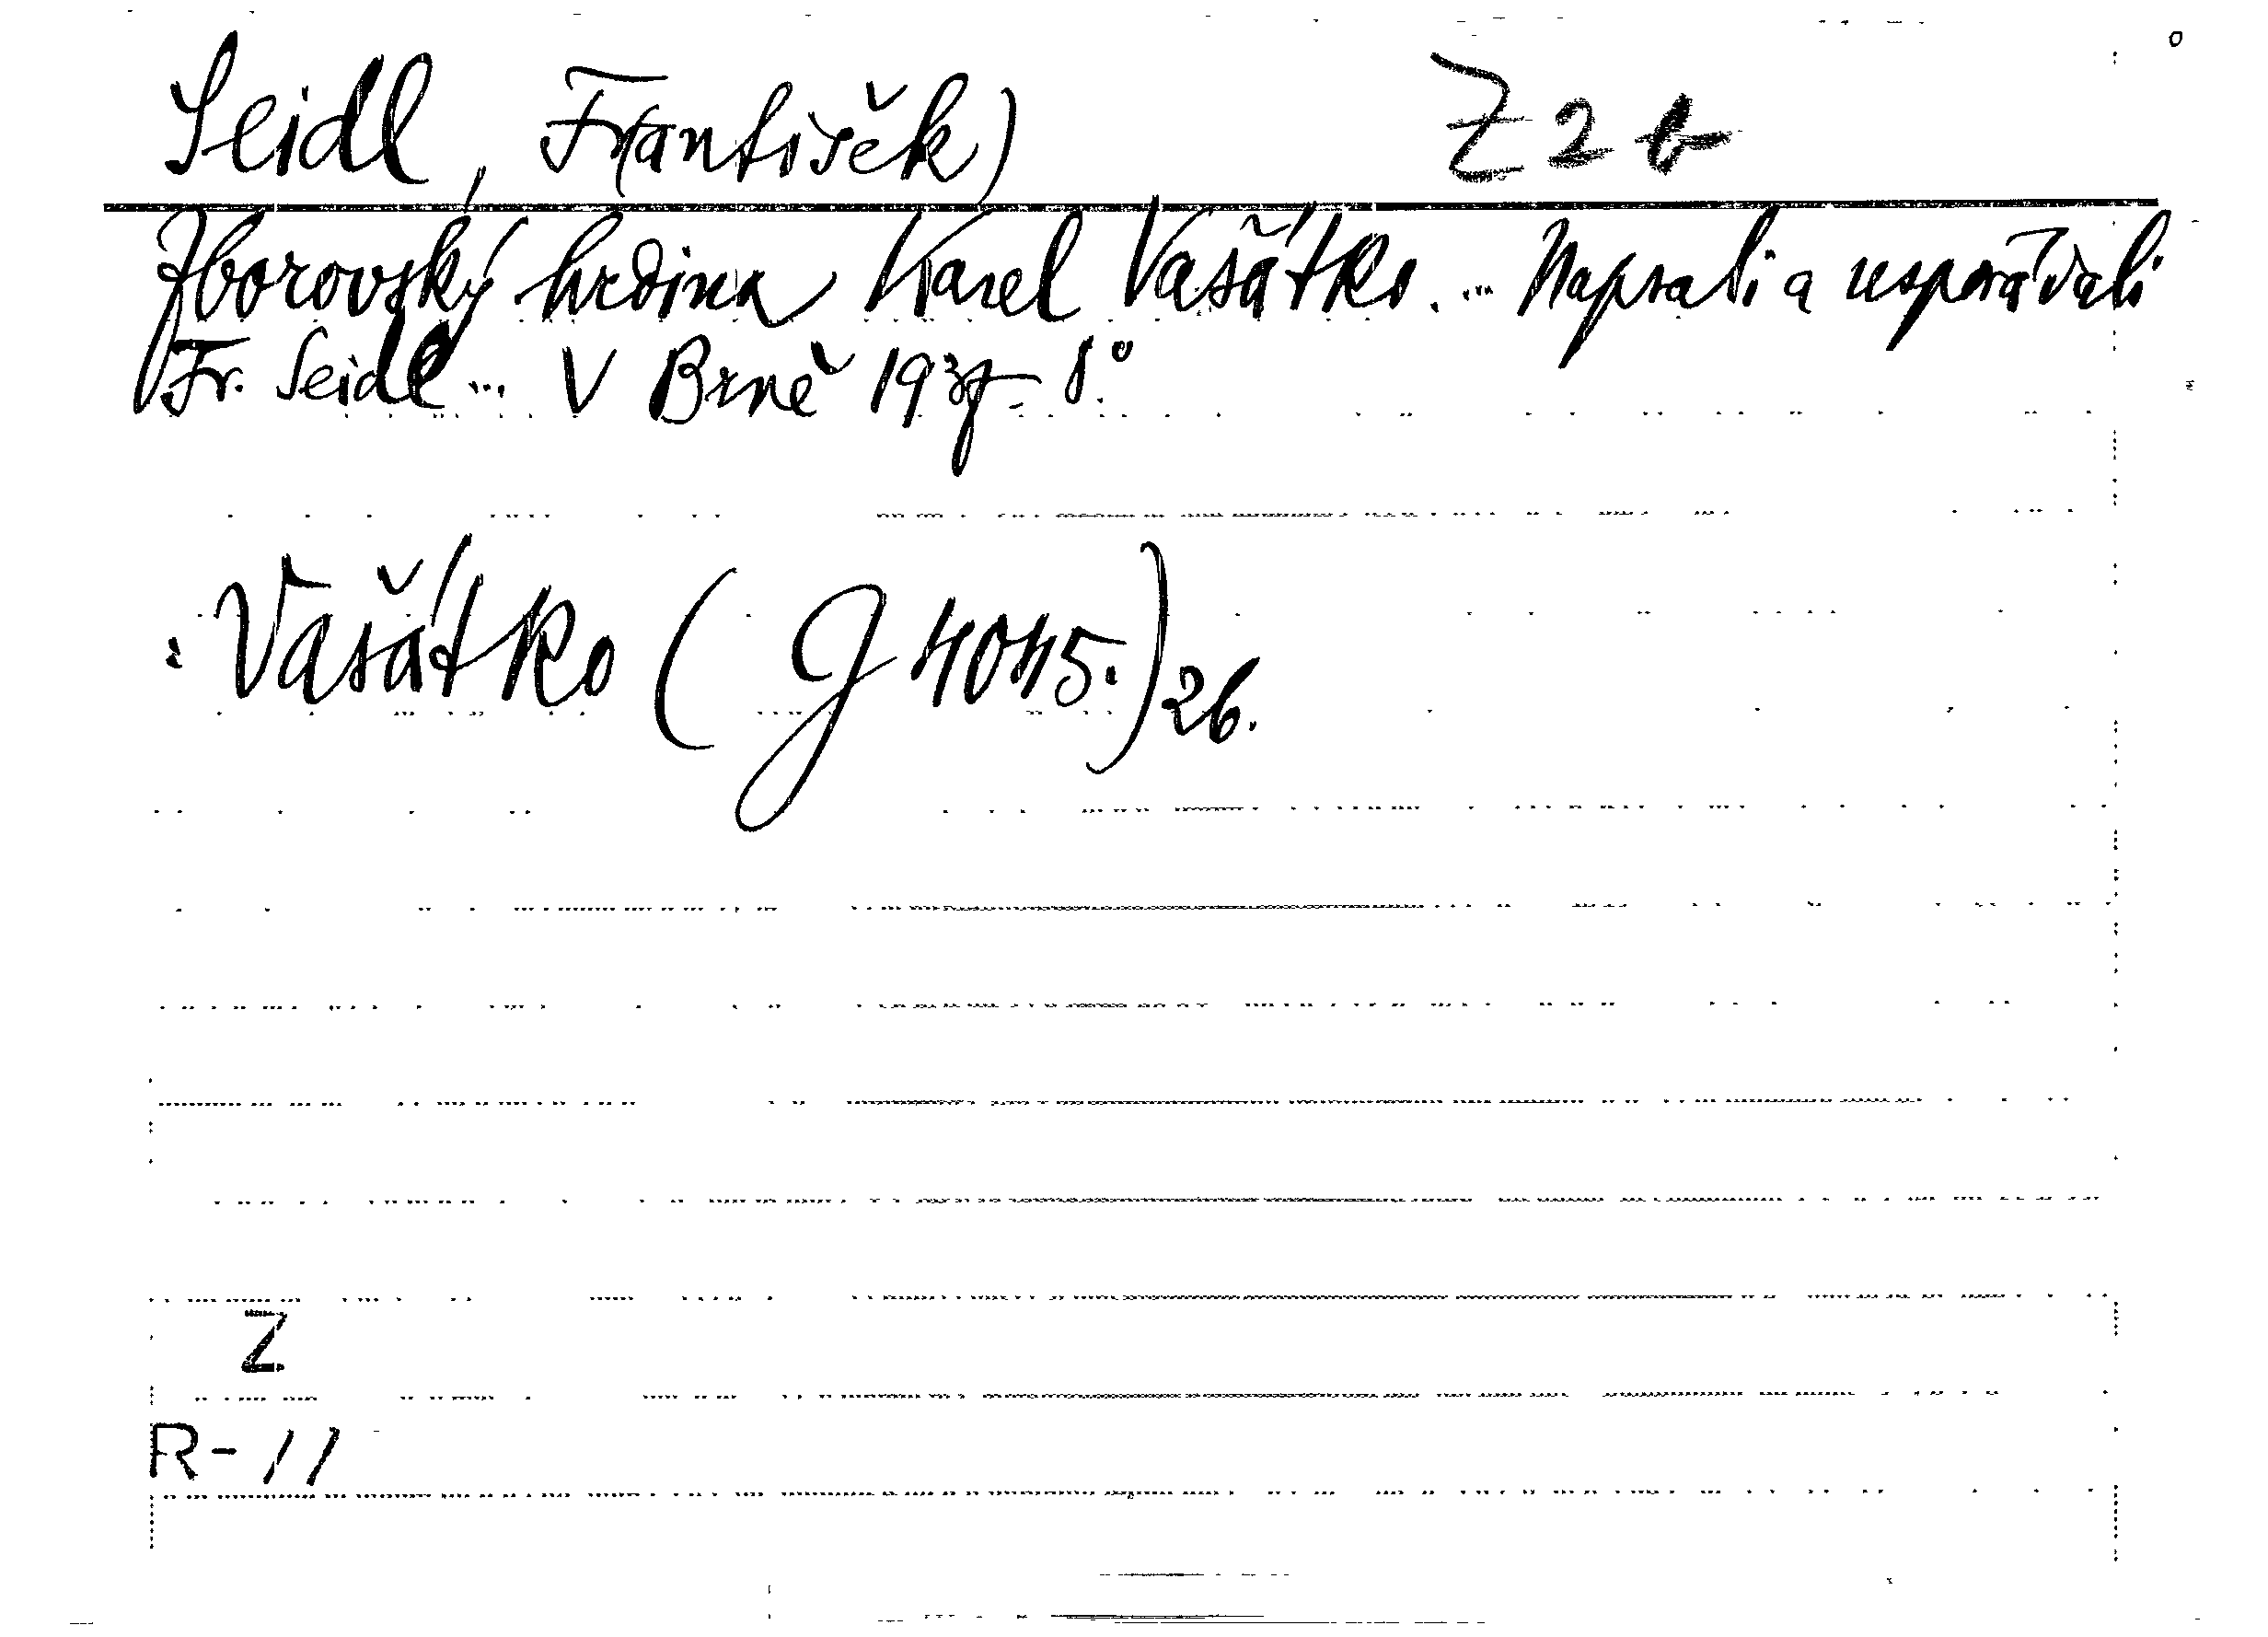 Seidl, Fr(antišek) Z 2 b
Zborovský hrdina Karel Vašátko. ... Napsali a uspořádali
Fr. Seidl ... V Brně 1937. 8.°
: Vašátko ( G 4045.) 26.
Z
R-11